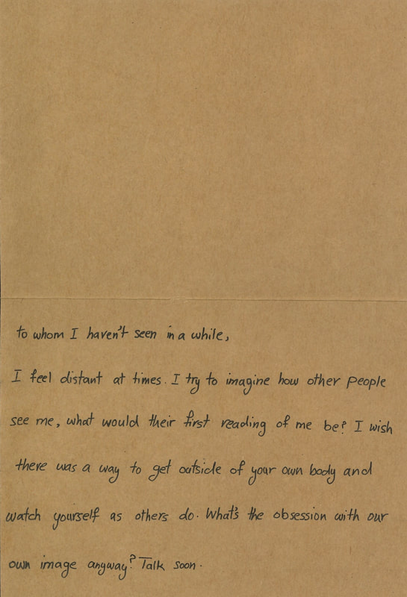 to whom I haven't seen in a while,
I feel distant at times. I try to imagine how other people
see me, what would their first reading of me be? I wish
there was a way to get outside of your own body and
watch yourself as others do. What's the obsession with our
own image anyway? Talk soon.